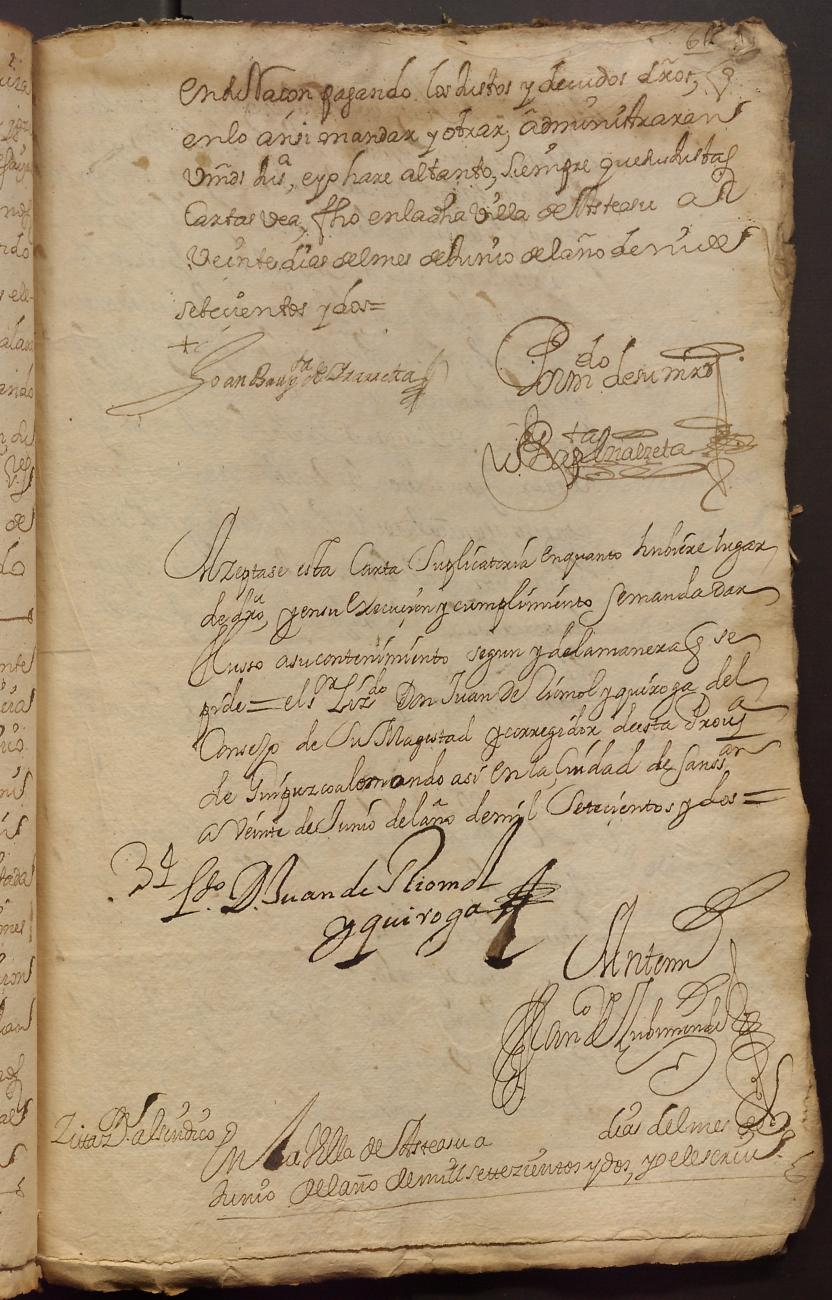 pagando los Justos y devidos dr̃os,
enlo ansi mandar, y otrar, administraran
Vmds Jusa, e yo hare al tanto, siempre que sus dictas
Cartas vea, fho en la dha Villa de Asteasu a
Veinte dias del mes de Junio de laño de mill
setecientos y dos=
Joan Bauta de
Por mdo de su mrd
Bapta
Azeptase esta Carta Suplicatoria enquanto hubiere lugar
de dro, y ensu Execucion y cumplimiento se manda dar
Usso asu contenimiento segun y delamanera q se
pide= el sr Lizdo Don Juan de Riomol y quiroga del
Consejo de Su Magestad y corregidor deesta Prova
de Guipuzcoa lo mando asi en la Ciudad de Sanss an
a Veinte de Junio del año de mil Setecientos y dos=
Ldo D. Juan de Riomol
y quiroga
Antemi
Franco de
al sindico
En la Villa de Asteasu a dias del mes de
Junio del año de mill settezientos y dos, yo el escriu